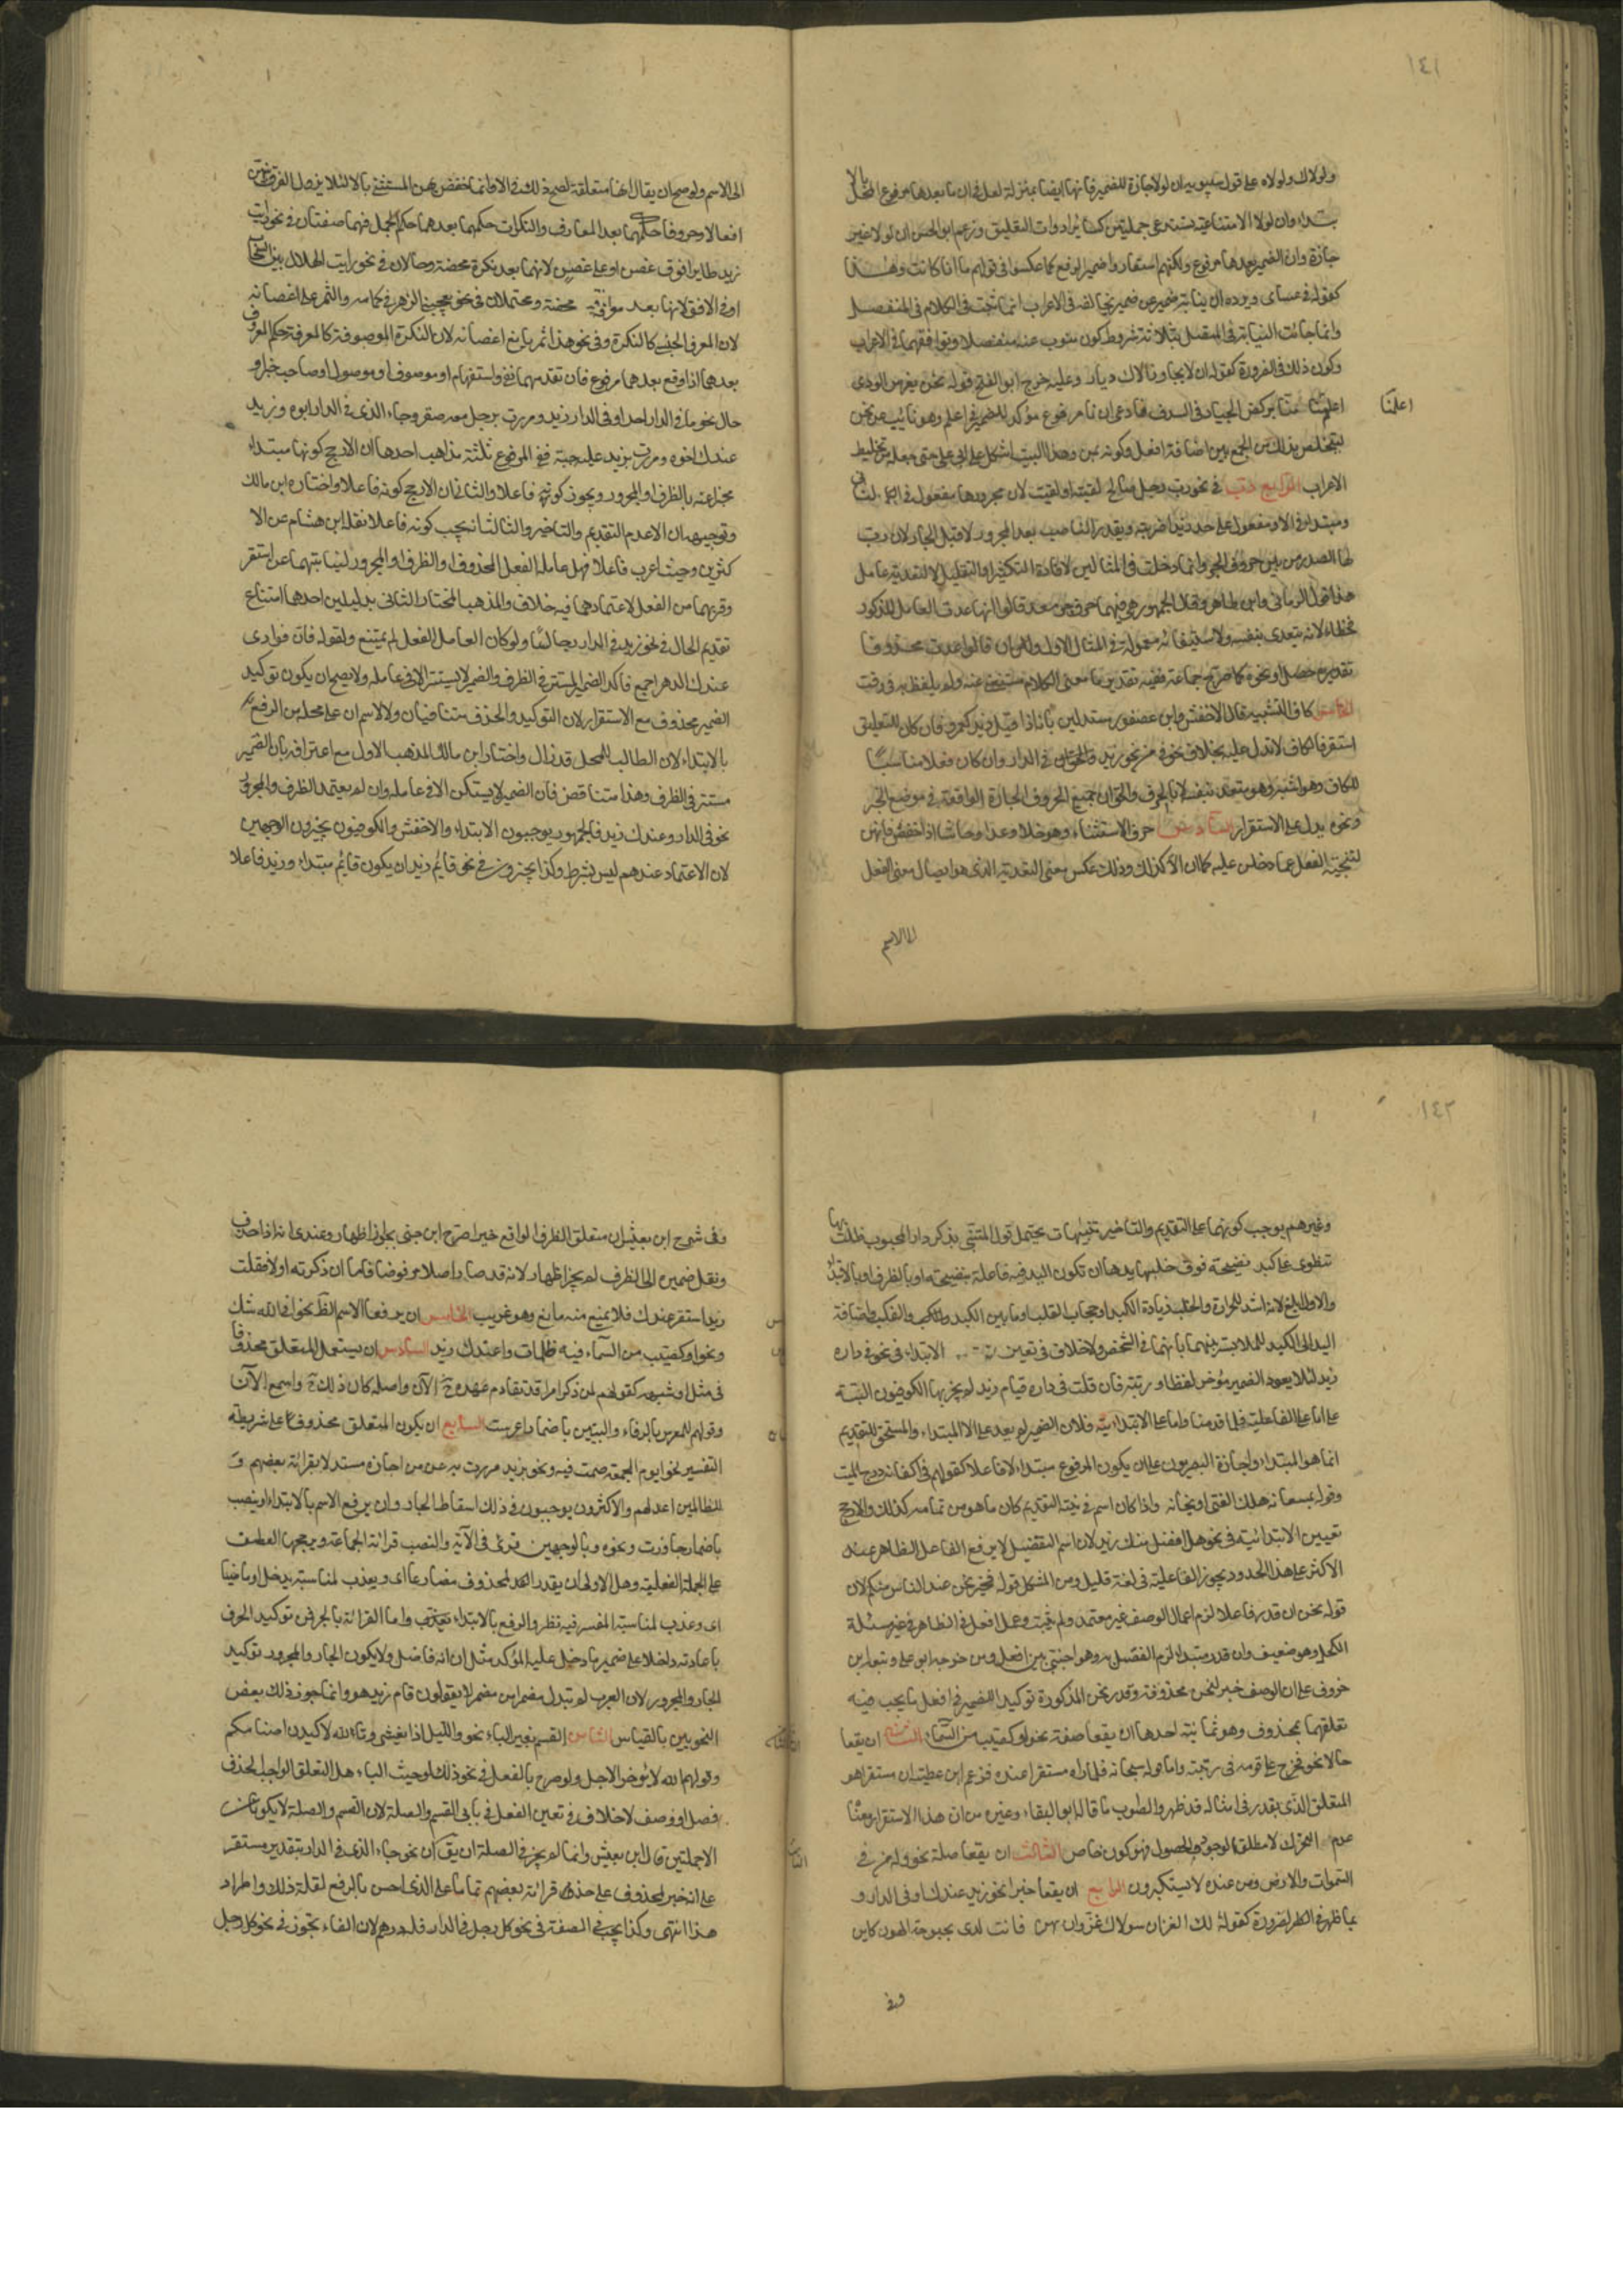 ١٤١
ولولاك ولولاه على قول سيبويه ان لولا جارة للضمير فانها ايضا بمنزلة لعل في ان ما بعدها مرفوع المحل بالا
بتداء وان لولا الامتناعية تستدعى جملتين كسائر ادوات التعليق وزعم ابو الحسن ان لولا غير
جارة وان الضمير بعدها مرفوع ولكنهم استعاروا ضمير الجر مكان ضمير الرفع كما عكسوا في قولهم ما انا كانت وهذا
كقوله في عساى ويرده ان نيابة ضمير عن ضمير يخالفه في الاعراب انما ثبتت في الكلام في المنفصل
وانما جائت النيابة في المتصل بثلاثة شروط كون المنوب عنه منفصلا وتوافقهما في الاعراب
وكون ذلك في الضرورة كقوله ان لا يجاورنا الاك ديار وعليه خرج ابو الفتح قوله نحن بغرس الودى
اعلمنا منا بركض الجياد في السدف فادعى ان نا مرفوع مؤكد للضمير في اعلم وهو نائب عن نحن
اعلمنا
ليتخلص بذلك من الجمع بين اضافة افعل وكونه بمن وهذا البيت اشكل على ابى على حتى جعله من تخليط
الاعراب الرابع رب في نحو رب رجل صالح لقيته او لقيت لان مجرورها مفعول في الثانى
ومبتداء في الاول او مفعول على حد زيدا ضربته ويقدر الناصب بعد المجرور لا قبل الجار لان رب
لها الصدر من بين حروف الجر وانما دخلت في المثالين لافادة التكثير او التقليل لا لتعدية عامل
هذا قول الرمانى وابن طاهر وقال الجمهور هى فيهما حرف جر معد فان قالوا انها عدت العامل المذكور
فخطاء لانه يتعدى بنفسه ولاستيفائه معموله في المثال الاول وان قالوا عدت محذوفا
تقديره حصل او نحوه كما صرح به جماعة ففيه تقدير ما معنى الكلام مستغن عنه ولم يلفظ به في وقت
الخامس كاف التشبيه قال الاخفش وابن عصفور مستدلين بانه اذا قيل زيد كعمرو فان كان المتعلق
استقر فالكاف لا تدل عليه بخلاف نحو في من نحو زيد في الدار وان كان فعلا مناسبا
للكاف وهو اشبه فهو متعد بنفسه لا بالحرف والحق ان جميع الحروف الجارة الواقعة في موضع الخبر
ونحوه يدل على الاستقرار السادس حرف الاستثناء وهو خلا وعدا وحاشا اذا خفضن فانهن
لتنحية الفعل عما دخلن عليه كما ان الا كذلك وذلك عكس معنى التعدية الذى هو ايصال معنى الفعل
الى الاسم
الى الاسم ولو صح ان يقال انها متعلقة لصح ذلك في الا وانما خفض بهن المستثنى بالا لئلا يزول الفرق بينهن
افعالا وحروفا حكمهما بعد المعارف والنكرات حكمهما بعدهما حكم الجمل فهما صفتان في نحو رايت
زيد طايرا فوق غصن او على غصن لانهما بعد نكرة محضة وحالان في نحو رايت الهلال بين السحاب
او في الافق لانهما بعد معرفة محضة ومحتملان في نحو يعجبنى الزهر في كمامه والثمر على اغصانه
لان المعرف الجنسى كالنكرة وفي نحو هذا ثمر يانع اغصانه لان النكرة الموصوفة كالمعرفة حكم المرفوع
بعدهما اذا وقع بعدهما مرفوع فان تقدمهما نفى او استفهام او موصوف او موصول او صاحب خبر او
حال نحو ما في الدار احد او في الدار زيد ومررت برجل معه صقر وجاء الذى في الدار ابوه وزيد
عندك اخوه ومررت بزيد عليه جبة ففي المرفوع ثلثة مذاهب احدها ان الارجح كونها مبتداء
مخبرا عنه بالظرف او المجرور ويجوز كونه فاعلا والثانى ان الارجح كونه فاعلا واختاره ابن مالك
وتوجيهه ان الاصل عدم التقديم والتاخير والثالث انه يجب كونه فاعلا نقله ابن هشام عن الا
كثرين وحيث اعرب فاعلا فهل عامله الفعل المحذوف او الظرف او المجرور لنيابتهما عن استقر
وقربهما من الفعل لاعتمادهما فيه خلاف والمذهب المختار الثانى بدليلين احدهما امتناع
تقديم الحال في نحو زيد في الدار جالسا ولو كان العامل الفعل لم يمتنع ولقوله فان فوادى
عندك الدهر اجمع فاكد الضمير المستتر في الظرف والضمير لا يستتر الا في عامله ولا يصح ان يكون توكيد
الضمير محذوف مع الاستقرار لان التوكيد والحذف متنافيان ولا لاسم ان على محله من الرفع
بالابتداء لان الطالب للمحل قد زال واختار ابن مالك المذهب الاول مع اعترافه بان الضمير
مستتر في الظرف وهذا متناقض فان الضمير لا يستكن الا في عامله وان لم يعتمد الظرف والمجرور
نحو في الدار وعندك زيد فالجمهور يوجبون الابتداء والاخفش والكوفيون يجيزون الوجهين
لان الاعتماد عندهم ليس بشرط وكذا يجيزون في نحو قائم زيد ان يكون قائم مبتداء وزيد فاعلا
١٤٢
وغيرهم يوجب كونهما على التقديم والتاخير تنبيهات يحتمل قول المتنبى بذكر دار المحبوب ظلت بها
تنطوى على كبد نضيجة فوق خلبها يدها ان تكون اليد فيه فاعلة بنضيجة او بالظرف او بالابتداء
والاول ابلغ لانه اشد للحرارة والخلب زيادة الكبد او حجاب القلب او ما بين الكبد والقلب واضافة
اليد الى الكبد للملابسة بينهما بانهما في الشخص ولا خلاف في تعين الابتداء في نحو في داره
زيد لئلا يعود الضمير على مؤخر لفظا ورتبة فان قلت في داره قيام زيد لم يجزها الكوفيون البتة
اما على الفاعلية فلما قدمنا واما على الابتدائية فلان الضمير لم يعد على المبتداء والمستحق للتقديم
انما هو المبتداء واجازه البصريون على ان يكون المرفوع مبتداء لا فاعلا كقولهم في اكفانه درج الميت
وقوله بمسعاته هلك الفتى او نجاته واذا كان الاسم في نية التقديم كان ما هو من تمامه كذلك والارجح
تعيين الابتدائية في نحو هل افضل منك زيد لان اسم التفضيل لا يرفع الفاعل الظاهر عند
الاكثر على هذا الحد ويجوز الفاعلية في لغة قليل ومن المشكل قوله فخير نحن عند الناس منكم لان
قوله نحن ان قدر فاعلا لزم اعمال الوصف غير معتمد ولم يثبت وعمل افعل في الظاهر في غير مسئلة
الكحل وهو ضعيف وان قدر مبتداء لزم الفصل به وهو اجنبى بين افعل ومن خرجه ابو على وتبعه ابن
خروف على ان الوصف خبر لنحن محذوفة وقدر نحن المذكورة توكيدا للضمير في افعل ما يجب فيه
تعلقهما بمحذوف وهو ثمانية احدها ان يقعا صفة نحو او كصيب من السماء الثانى ان يقعا
حالا نحو فخرج على قومه في زينته واما قوله سبحانه فلما راه مستقرا عنده فزعم ابن عطية ان مستقرا هو
المتعلق الذى يقدر في امثاله قد ظهر والصواب ما قاله ابو البقاء وغيره من ان هذا الاستقرار معناه
عدم التحرك لا مطلق الوجود والحصول فهو كون خاص الثالث ان يقعا صلة نحو وله من في
السموات والارض ومن عنده لا يستكبرون الرابع ان يقعا خبرا نحو زيد عندك او في الدار و
بما ظهر في الضرورة كقوله لك العز ان مولاك عز وان يهن فانت لدى بحبوحة الهون كاين
وفي
وفي شرح ابن يعيش ان متعلق الظرف الواقع خبرا صرح ابن جنى بجواز اظهاره وعندى انه اذا حذف
ونقل ضميره الى الظرف لم يجز اظهاره لانه قد صار اصلا مرفوضا فاما ان ذكرته اولا فقلت
زيد استقر عندك فلا يمنع منه مانع وهو غريب الخامس ان يرفعا الاسم الظاهر نحو افي الله شك
ونحو او كصيب من السماء فيه ظلمات واعندك زيد السادس ان يستعمل المتعلق محذوفا
في مثل او شبهه كقولهم لمن ذكر امرا قد تقادم عهده ح الآن واصله كان ذلك ح واسمع الآن
وقولهم للمعرس بالرفاء والبنين باضمار اعرست السابع ان يكون المتعلق محذوفا على شريطة
التفسير نحو ايوم الجمعة صمت فيه ونحو بزيد مررت به عند من اجازه مستدلا بقرائة بعضهم و
للظالمين اعد لهم والاكثرون يوجبون في ذلك اسقاط الجار وان يرفع الاسم بالابتداء او ينصب
باضمار جاوزت ونحوه وبالوجهين قرئ في الآية والنصب قرائة الجماعة ويرجحها العطف
على الجملة الفعلية وهل الاولى ان يقدر المحذوف مضارعا اى ويعذب لمناسبة يدخل او ماضيا
اى وعذب لمناسبة المفسر فيه نظر والرفع بالابتداء واما القرائة بالجر فمن توكيد الحرف
باعادته داخلا على ضمير ما دخل عليه المؤكد مثل ان زيدا انه فاضل ولا يكون الجار والمجرور توكيد
الجار والمجرور لان العرب لم تبدل مضمرا من مظهر لا يقولون قام زيد هو وانما جوز ذلك بعض
النحويين بالقياس الثامن القسم بغير الباء نحو والليل اذا يغشى وتالله لاكيدن اصنامكم
وقولهم لله لا يؤخر الاجل ولو صرح بالفعل في نحو ذلك لوجبت الباء هل المتعلق الواجب الحذف
فعل او وصف لا خلاف في تعين الفعل في بابى القسم والصلة لان القسم والصلة لا يكونان
الا جملتين قال ابن يعيش وانما لم يجز في الصلة ان يق ان نحو جاء الذى في الدار بتقدير مستقر
على انه خبر لمحذوف على حد قرائة بعضهم تماما على الذى احسن بالرفع لقلة ذلك واطراد
هذا انتهى وكذا يجب في الصفة في نحو كل رجل في الدار فله درهم لان الفاء تجوز في نحو كل رجل